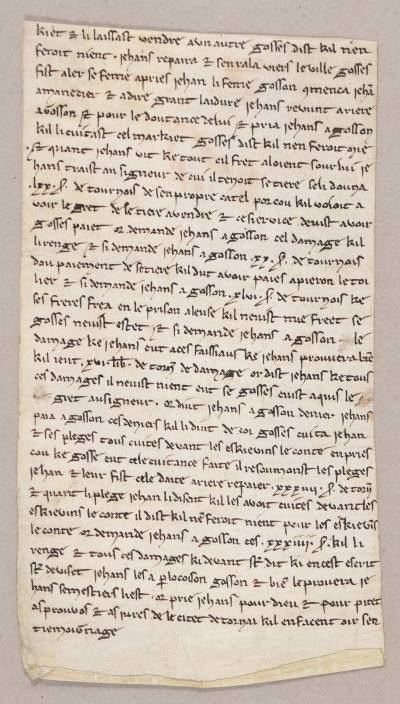 kiet & li laissast vendre a un autre gosses dist kil n'en
feroit nient . jehans repaira & s'en rala viers le ville gosses
fist aler se feme apries jehan li feme gosson 9menca jehan
a manecier & a dire grant laidure jehans revint ariere
a gosson & pour le doutance de lui & pria jehans a gosson
kil li cuitast cel markiet gosses dist kil n'en feroit nie
& quant jehans vit ke tout cil fret aloient sour lui je
hans traist au signeur de cui il tenoit se tiere se li douna
.lxx. s. de tournois de sen propre catel por cou kil voloit a
voir le gret de le tiere a vendre & ce service deuist avoir
gosses paiet or demande jehans a gosson cel damage kil
li renge & si demande jehans a gosson .xx. s. de tournois
dou paiement de se tiere kil dut avoir paies a pieron le toi
lier & si demande jehans a gosson .xlvi. s. de tournois ke
ses freres frea en le prison a leuse kil n'euist mie freet se
gosses n'euist estet & si demande jehans a gosson le
damage ke jehans eut a ces faissiaus ke jehans prouvera bien
kil i eut .xvi. lib. de torn de damage or dist jehans ke tous
ces damages il n'euist nient eut se gosses euist aquis le
gret au signeur . or duut jehans a gosson denier jehans
paia a gosson ces deniers kil li duut de cor gosses cuita jehan
& ses pleges tous cuites devant les eskievins le conte en pries
cou ke gosse eut cele cuitance faite il resoumonst les pleges
jehan & leur fist cele date ariere repaier .xxxvii. s. de torn
& quant li plege jehan li disent kil les avoit cuites devant les
eskievins le conte il dist kil nen feroit nient pour les eskievins
le conte or demande jehans a gosson ces .xxxiiii. s. kil li
renge & tous ces damages ki devant st dit ki en cest escrit
st deviset jehans les a p l'ocoson gosson & bien le provera je
hans se mestiers li est . or prie jehans pour dieu & pour pitet
as provos & as jures de le citet de tornai kil en facent oir sen
tiemoignage